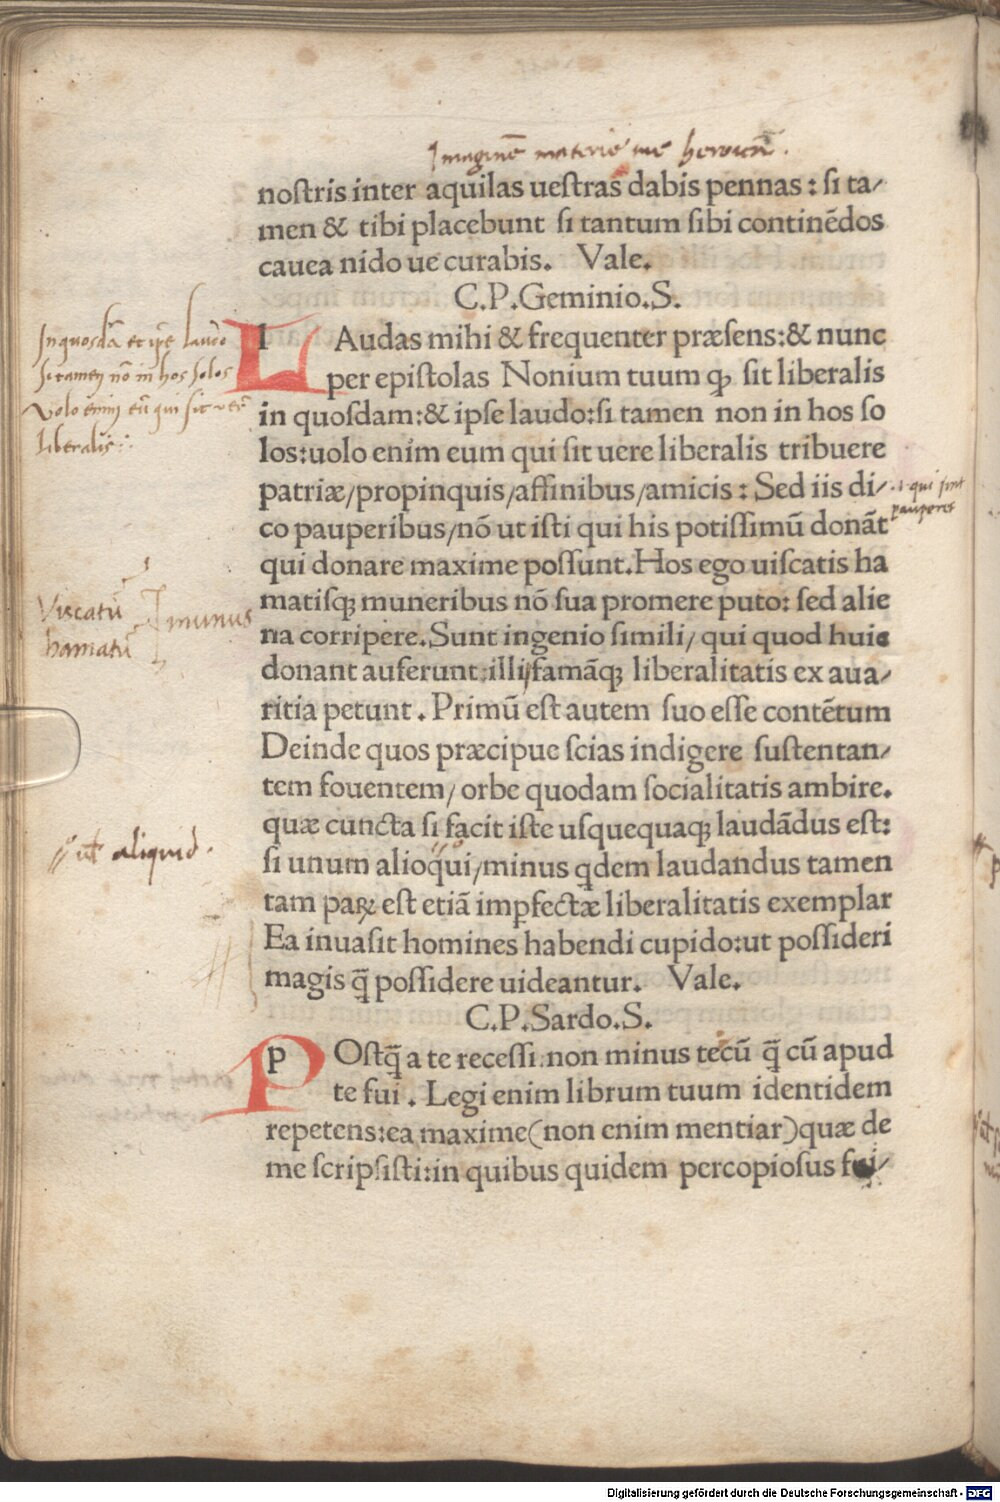 Imaginē materie tue
nostris inter aquilas uestras dabis pennas : si ta/
men & tibi placebunt si tantum sibi continẽdos
cauea nido ue curabis. Vale.
C.P.Geminio.S.
LAudas mihi & frequenter præsens:& nunc
per epistolas Nonium tuum ꝙ sit liberalis
in quosdam:& ipse laudo:si tamen non in hos so
los:uolo enim eum qui sit uere liberalis tribuere
patriæ/propinquis/affinibus/amicis : Sed iis di/
co pauperibus/nō ut isti qui his potissimū donāt
qui donare maxime possunt.Hos ego uiscatis ha
matisqꝫ muneribus nō sua promere puto: sed alie
na corripere.Sunt ingenio simili/ qui quod huic
donant auferunt:illi/famāqꝫ liberalitatis ex aua/
ritia petunt . Primū est autem suo esse contētum
Deinde quos præcipue scias indigere sustentan/
tem fouentem/ orbe quodam socialitatis ambire.
quæ cuncta si facit iste usquequaqꝫ laudādus est:
si unum alioqui/minus qdem laudandus tamen
tam paꝝ est etiā imꝑfectæ liberalitatis exemplar
Ea inuasit homines habendi cupido:ut possideri
magis q̄ possidere uideantur. Vale.
C.P.Sardo.S.
POstq̄ a te recessi.non minus tecū q̄ cū apud
te fui . Legi enim librum tuum identidem
repetens:ea maxime(non enim mentiar)quæ de
me scripsisti:in quibus quidem percopiosus fui/
Inquosdā et ipe laudo
si tamen nō in hos solos
Volo enim eū qui sit uere
liberalis
.i. qui sint
pauperes
Viscatū
hamatū
munus
ut aliquid.
Digitalisierung gefördert durch die Deutsche Forschungsgemeinschaft - DFG